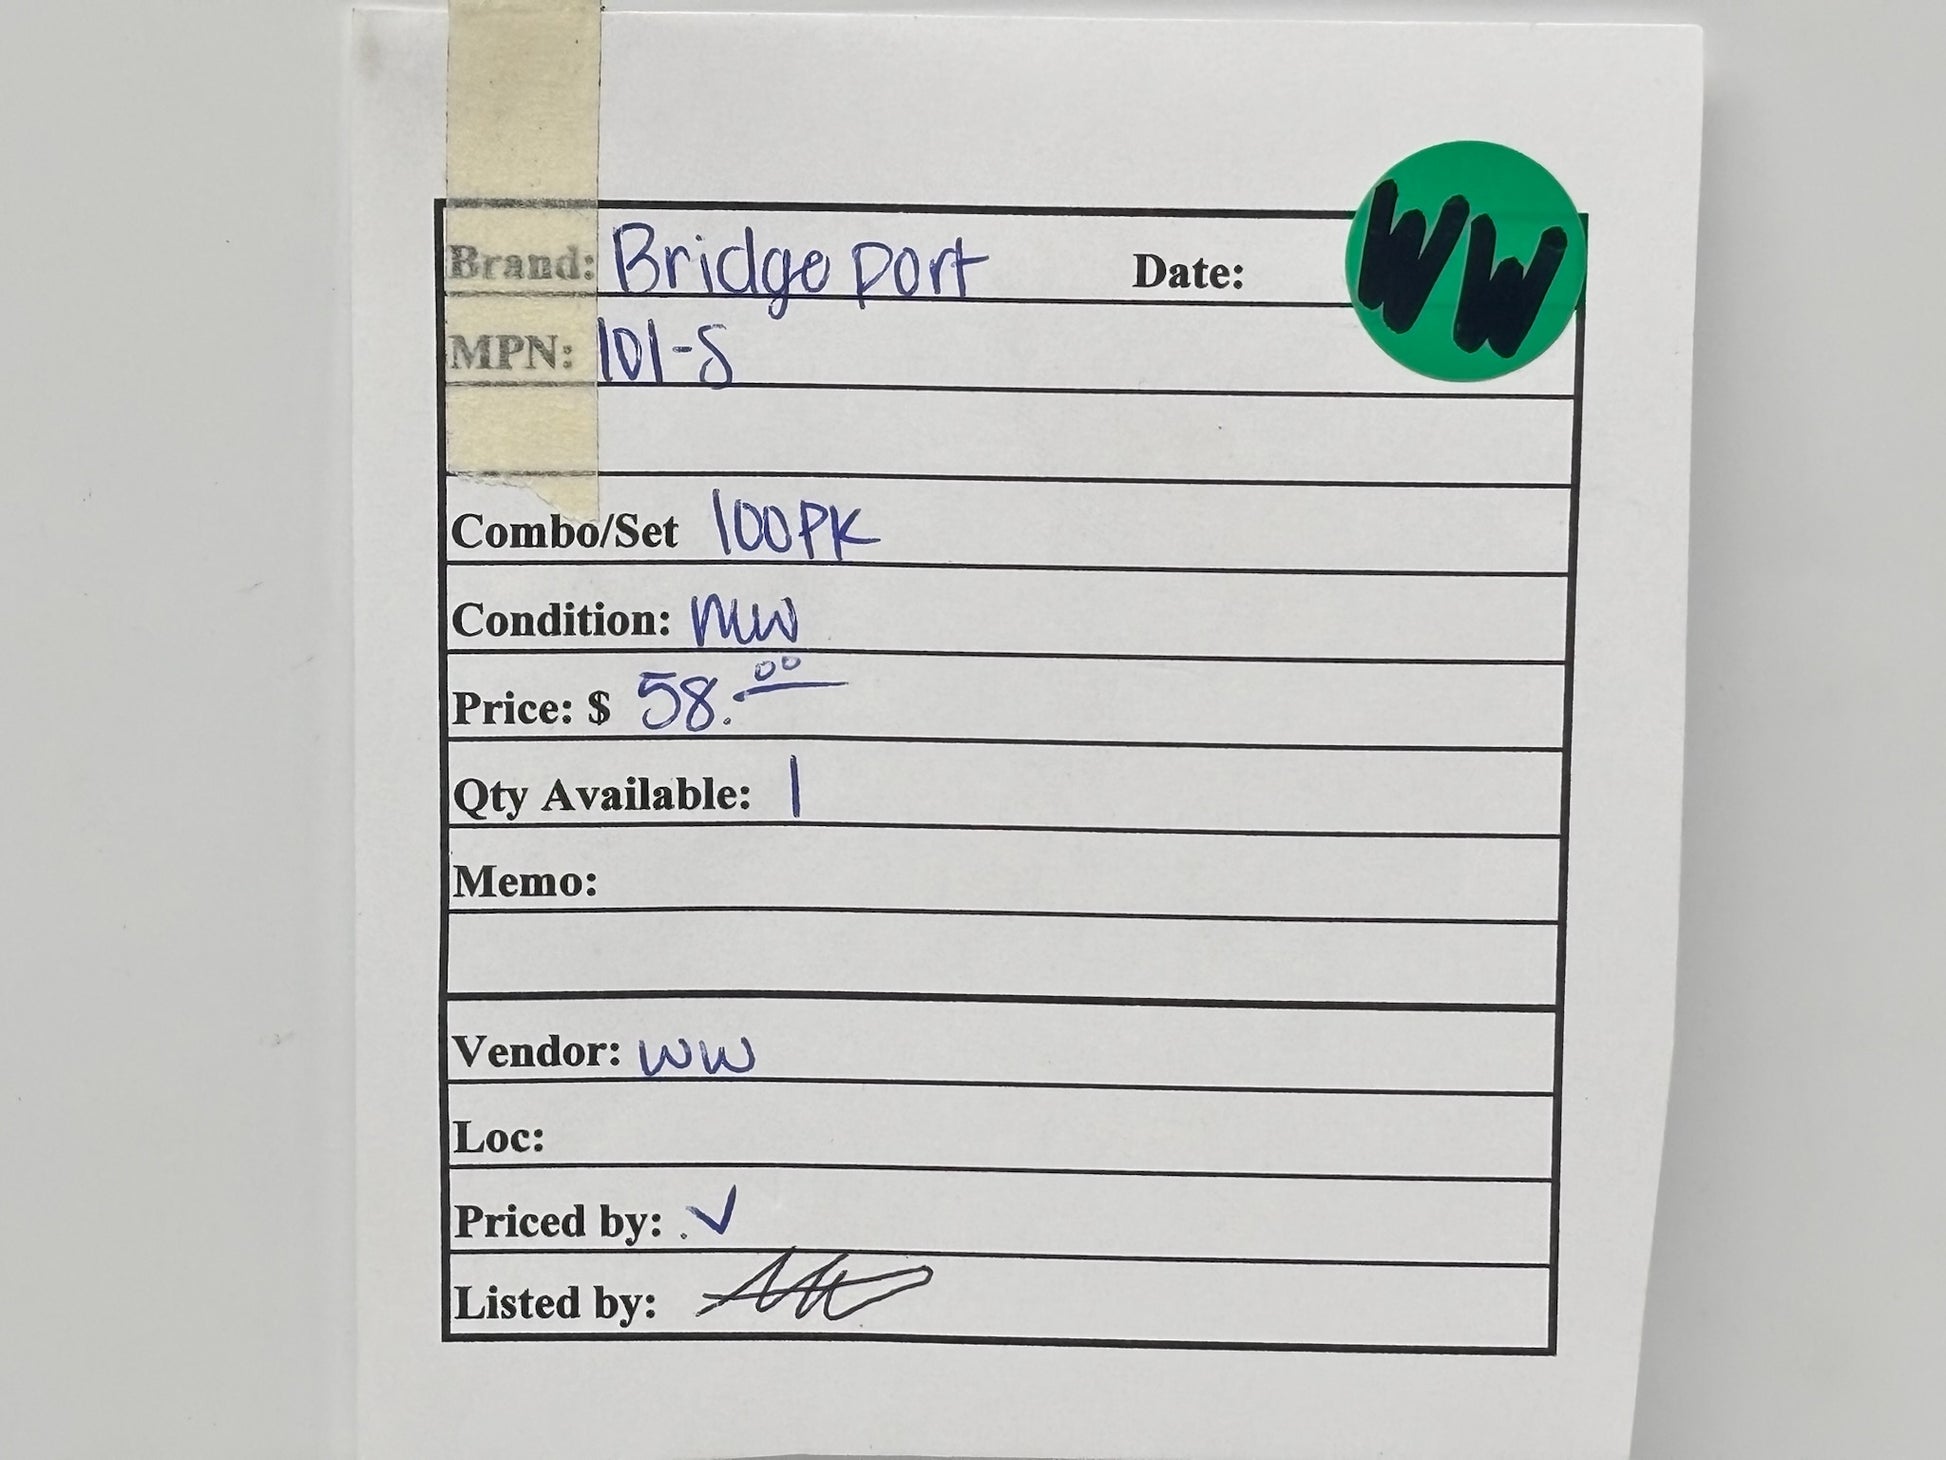 Brand: Bridgeport Date:
WW
MPN: 101-S
Combo/Set 100PK
Condition: new
Price: $ 58.00
Qty Available: 1
Memo:
Vendor: WW
Loc:
Priced by: ✓
Listed by: